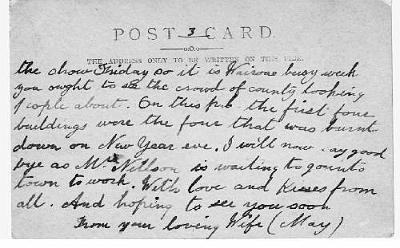 POST 3 CARD.
THE ADDRESS ONLY TO BE WRITTEN ON THIS SIDE.
the show Friday so it is Wairoas busy week
you ought to see the crowd of county looking
people about. On this p.c. the first four
buildings were the four that was burnt
down on New Year eve. I will now say good
bye as Mr Nillson is waiting to go into
town to work. With love and kisses from
all. And hoping to see you soon
From your loving Wife (May)